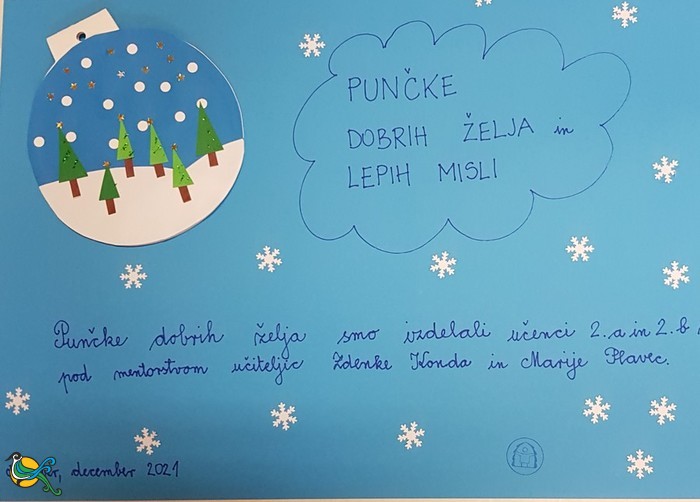 PUNČKE
DOBRIH ŽELJA in
LEPIH MISLI
Punčke dobrih želja smo izdelali učenci 2. a in 2. b,
pod mentorstvom učiteljic Zdenke Konda in Marije Plavec.
december 2021